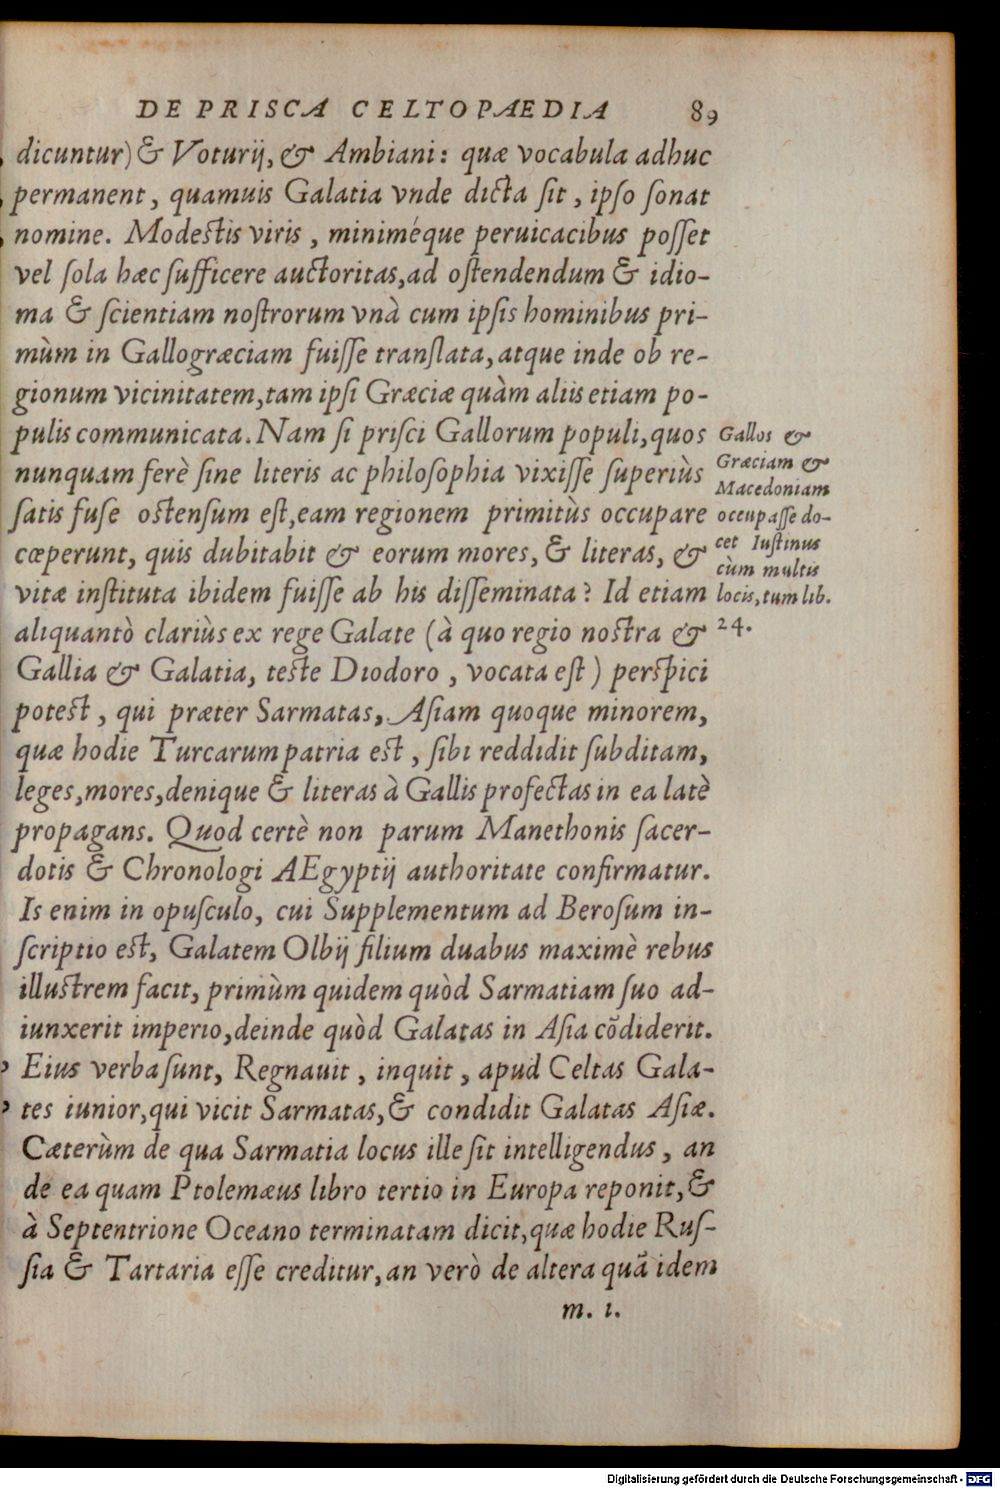 DE PRISCA CELTOPAEDIA 89
dicuntur) & Voturij, & Ambiani: quæ vocabula adhuc
permanent, quamuis Galatia vnde dicta ſit, ipſo ſonat
nomine. Modeſtis viris, miniméque peruicacibus poſſet
vel ſola hæc ſufficere auctoritas, ad oſtendendum & idio-
ma & ſcientiam noſtrorum vnà cum ipſis hominibus pri-
mùm in Gallogræciam fuiſſe tranſlata, atque inde ob re-
gionum vicinitatem, tam ipſi Græciæ quàm aliis etiam po-
pulis communicata. Nam ſi priſci Gallorum populi, quos
nunquam ferè ſine literis ac philoſophia vixiſſe ſuperiùs
ſatis fuſe oſtenſum eſt, eam regionem primitùs occupare
cœperunt, quis dubitabit & eorum mores, & literas, &
vitæ inſtituta ibidem fuiſſe ab his diſſeminata? Id etiam
aliquantò clariùs ex rege Galate (à quo regio noſtra &
Gallia & Galatia, teſte Diodoro, vocata eſt) perſpici
poteſt, qui præter Sarmatas, Aſiam quoque minorem,
quæ hodie Turcarum patria eſt, ſibi reddidit ſubditam,
leges, mores, denique & literas à Gallis profectas in ea latè
propagans. Quod certè non parum Manethonis ſacer-
dotis & Chronologi AEgyptij authoritate confirmatur.
Is enim in opuſculo, cui Supplementum ad Beroſum in-
ſcriptio eſt, Galatem Olbij filium duabus maximè rebus
illuſtrem facit, primùm quidem quòd Sarmatiam ſuo ad-
iunxerit imperio, deinde quòd Galatas in Aſia cōdiderit.
Eius verba ſunt, Regnauit, inquit, apud Celtas Gala-
tes iunior, qui vicit Sarmatas, & condidit Galatas Aſiæ.
Cæterùm de qua Sarmatia locus ille ſit intelligendus, an
de ea quam Ptolemæus libro tertio in Europa reponit, &
à Septentrione Oceano terminatam dicit, quæ hodie Ruſ-
ſia & Tartaria eſſe creditur, an verò de altera quā idem
m. i.
Gallos &
Græciam &
Macedoniam
occupaſſe do-
cet Iuſtinus
cùm multis
locis, tum lib.
24.
Digitalisierung gefördert durch die Deutsche Forschungsgemeinschaft - DFG